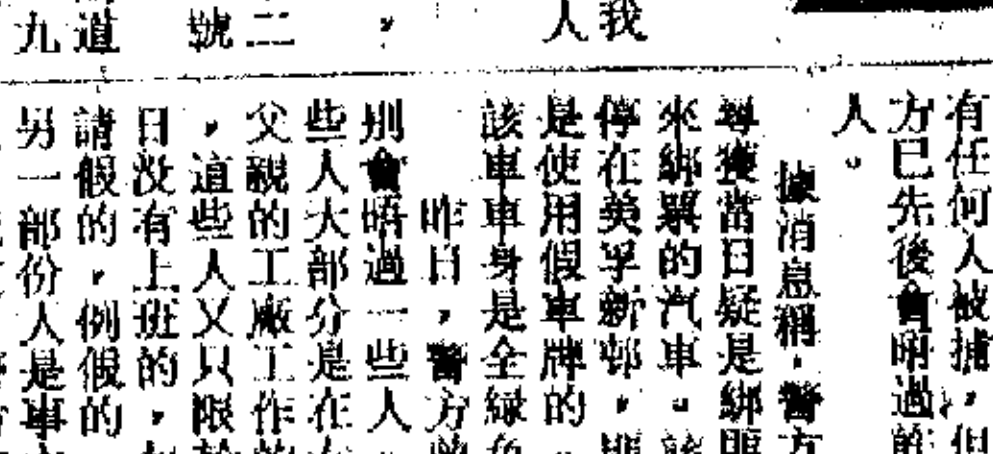 我
人
，
二
號
道
九
有任何人被捕，但
方已先後會晤過
人。
據消息稱，警方
尋獲當日疑是綁匪
來綁票的汽車。該
停在英孚新邨，
是使用假車牌的，
該車車身是全綠色
昨日，警方
別會晤過一些人
些人大部分是在
父親的工廠工作
，這些人又只限於
日没有上班的，
請假的，例假的
另一部份人是事